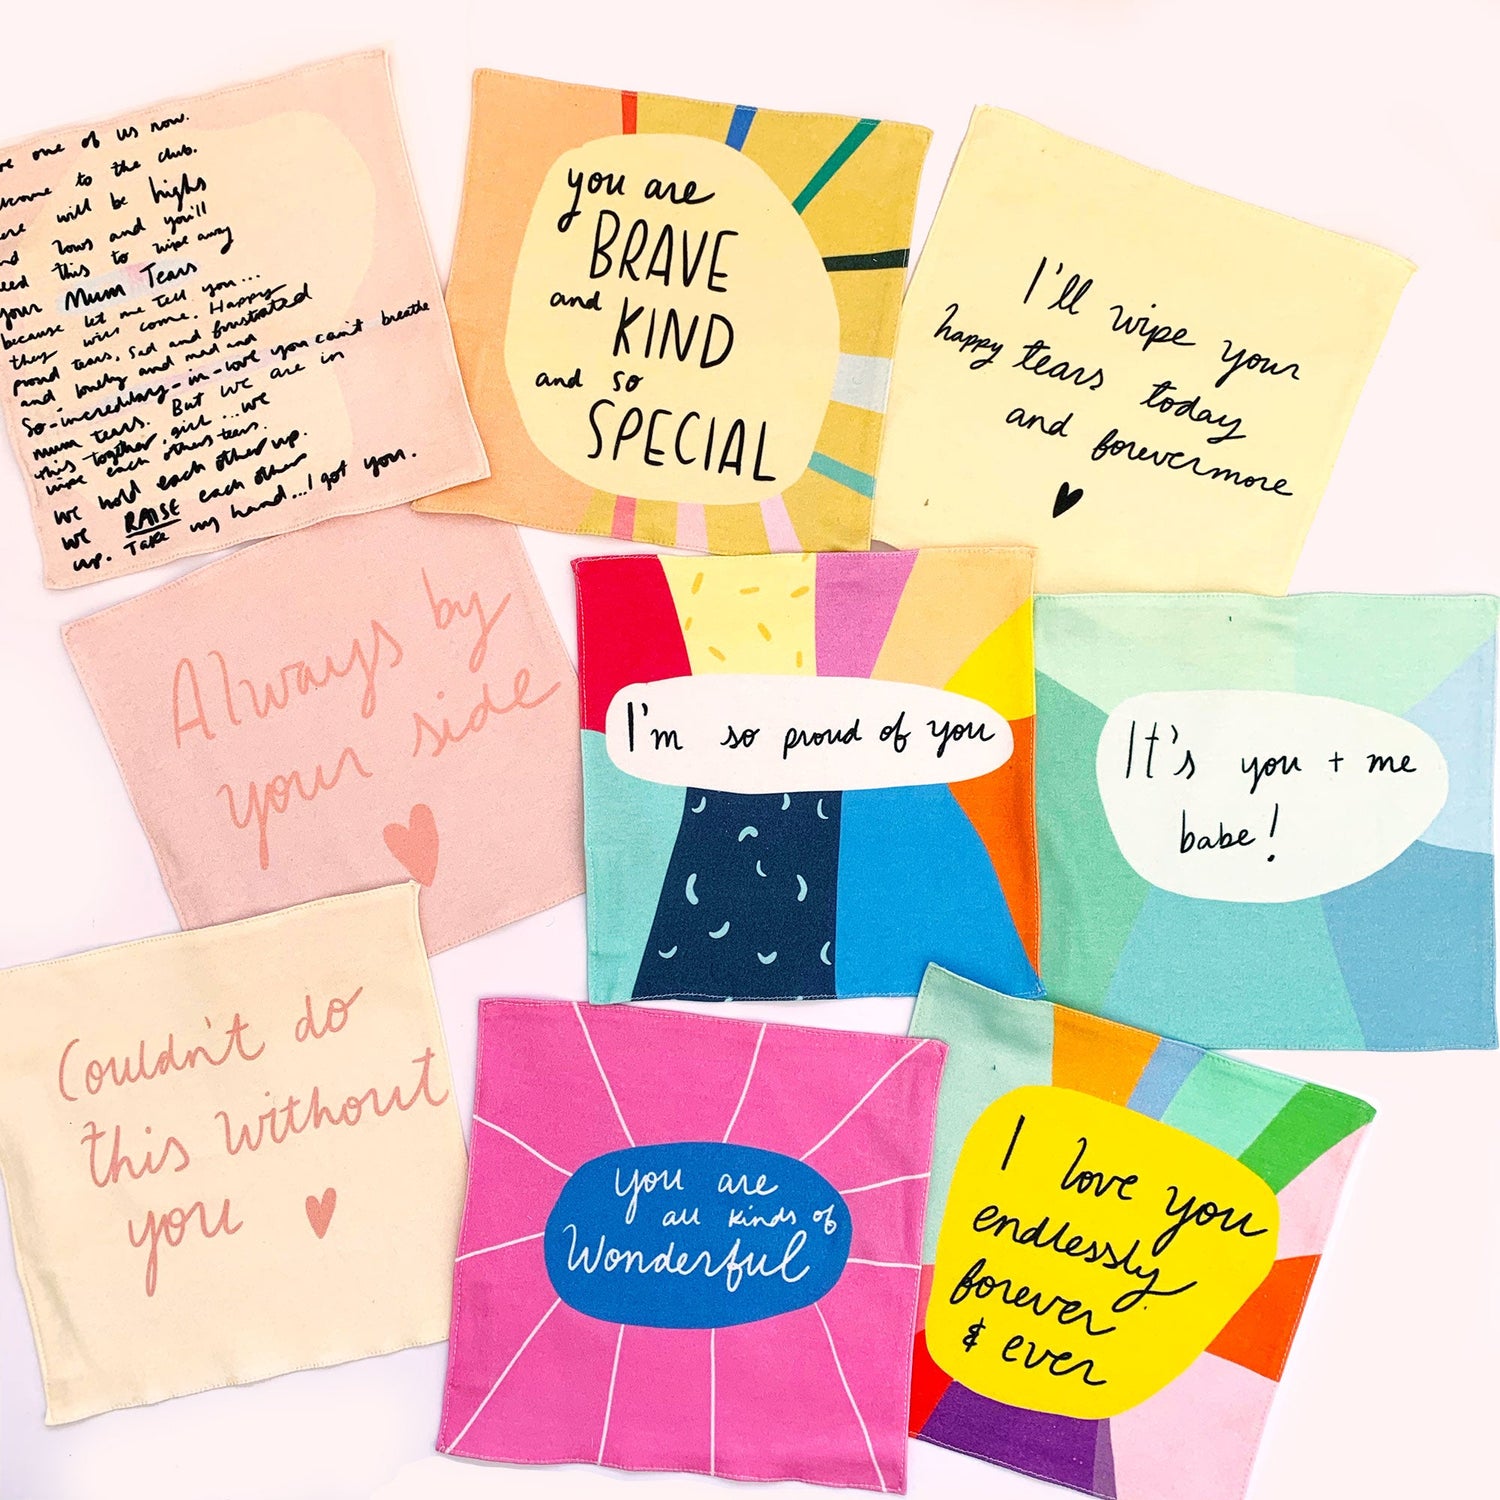 one of us now.
to the club.
will be highs
lows and you'll
this to wipe away
your Mum Tears
because let me tell you...
they will come. Happy
proud tears, sad and frustrated
and lonely and mad and
so-incredibly-in-love you can't breathe
mum tears. But we are in
this together, girl ...we
wipe each others tears.
we hold each other up.
we RAISE each other
up. Take my hand...I got you.
you are
BRAVE
and KIND
and so
SPECIAL
I'll wipe your
happy tears today
and forevermore
Always by
your side
I'm so proud of you
It's you + me
babe!
Couldn't do
this without
you
you are
all kinds of
Wonderful
I love you
endlessly
forever
& ever